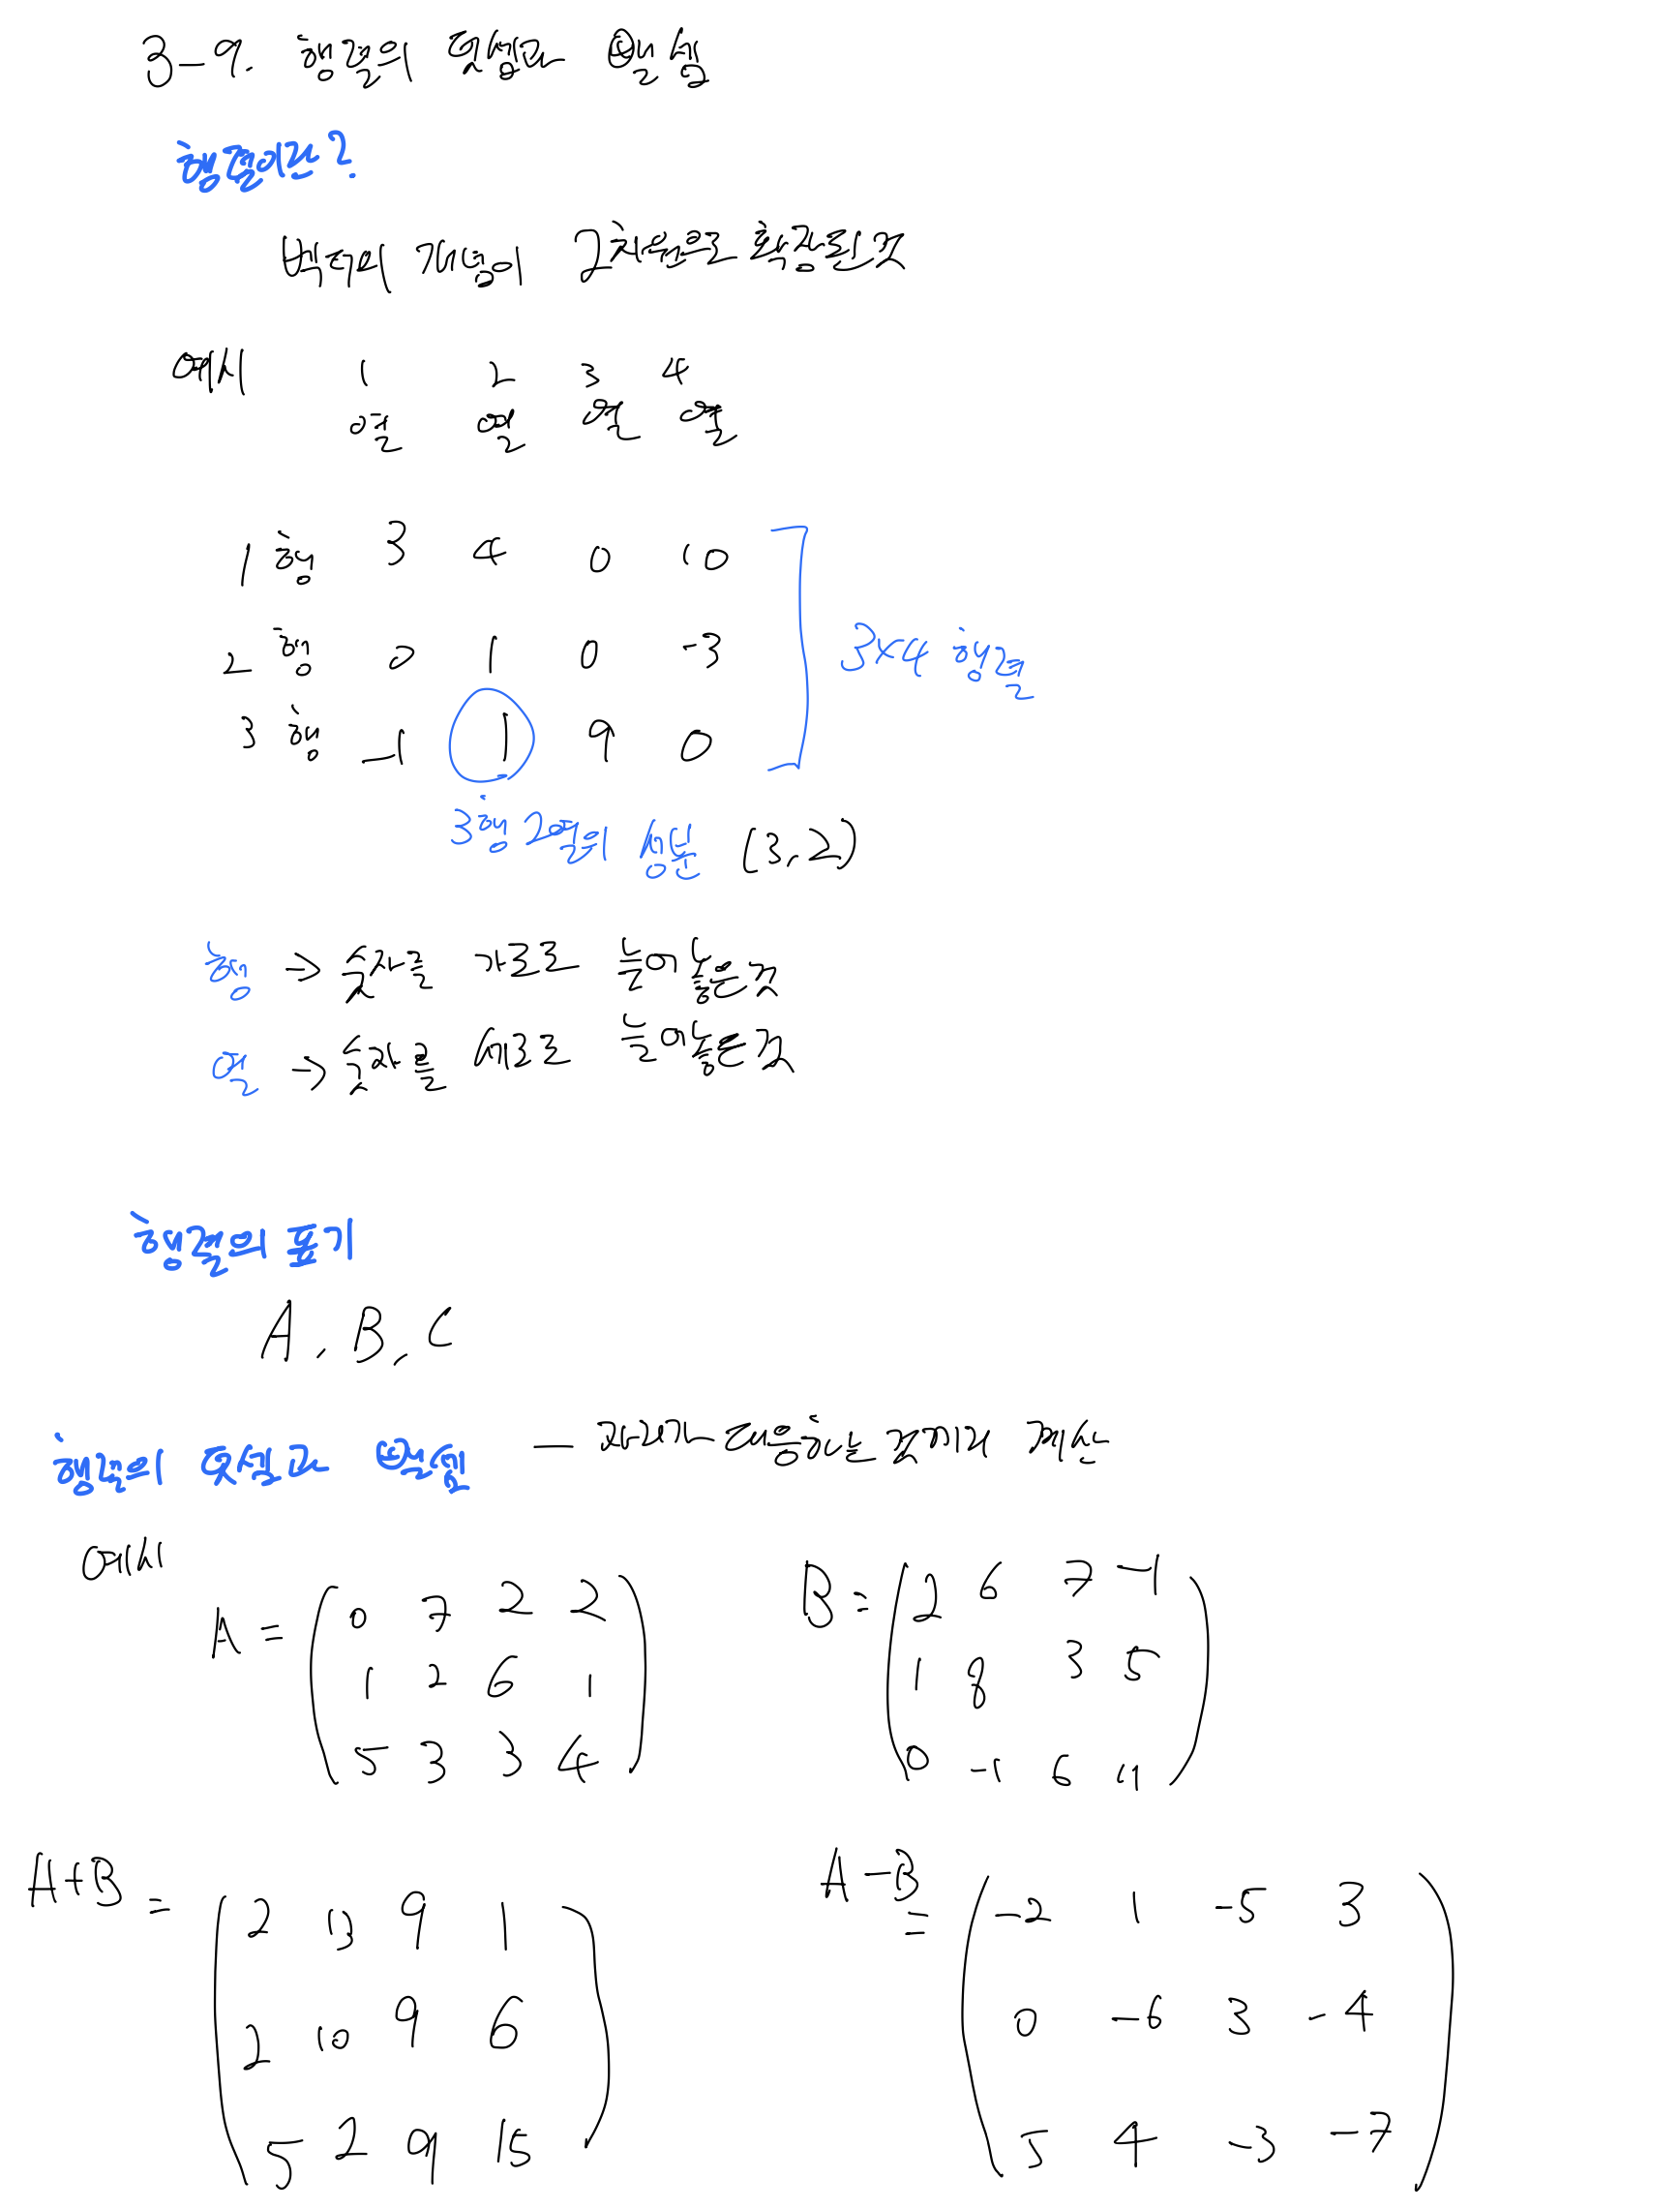 3-9. 행렬의 덧셈과 뺄셈
행렬이란?
벡터의 개념이 2차원으로 확장된 것
예시 1 2 3 4
열 열 열 열
1 행 3 4 0 10
2 행 0 1 0 -3
3×4 행렬
3 행 -1 1 9 0
3행 2열의 성분 (3,2)
행 → 숫자를 가로로 늘어놓은 것
열 → 숫자를 세로로 늘어놓은 것
행렬의 표기
A, B, C
행렬의 덧셈과 뺄셈 - 각각 대응하는 것끼리 계산
예시
A = ( 0 7 2 2
1 2 6 1
5 3 3 4 )
B = ( 2 6 7 -1
1 8 3 5
0 -1 6 11 )
A+B = ( 2 13 9 1
2 10 9 6
5 2 9 15 )
A-B = ( -2 1 -5 3
0 -6 3 -4
5 4 -3 -7 )